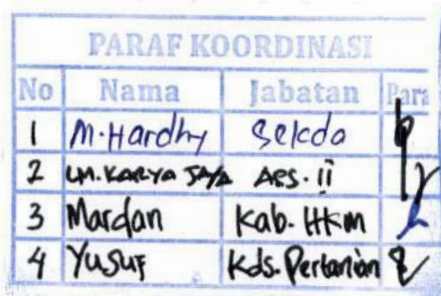 PARAF KOORDINASI
No Nama Jabatan Para
1 M. Hardhy Sekda
2 LM. KARYA JAYA Aes. II
3 Mardan Kab. HKm
4 Yusuf Kds. Pertanian